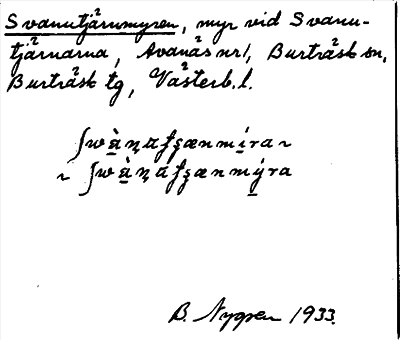 Svanutjärnmyren, myr vid Svanu-
tjärnarna, Avanäs nr 1, Burträsk sn,
Burträsk tg, Västerb. l.
ʃwànafsænmíra ~
~ ʃwànafsænmýra
B. Nygren 1933.